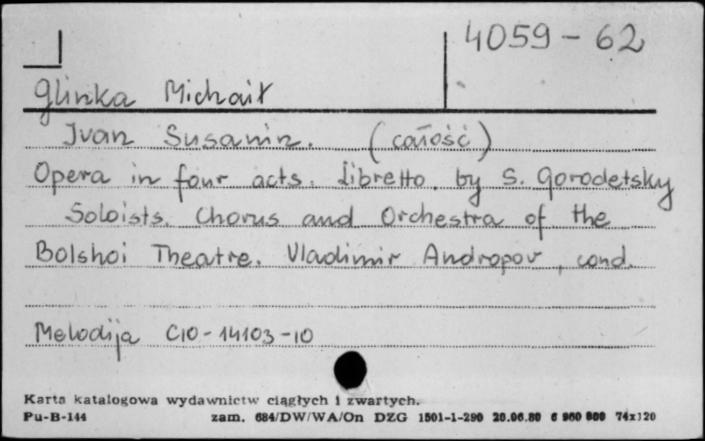 4059-62
Glinka Michaił
Ivan Susanin. (całość)
Opera in four acts. Libretto. by S. Gorodetsky
Soloists. Chorus and Orchestra of the
Bolshoi Theatre. Vladimir Andropov, cond.
Melodija C10-14103-10
Karta katalogowa wydawnictw ciągłych i zwartych.
Pu-B-144 zam. 684/DW/WA/On DZG 1501-1-290 20.06.80 6 960 000 74x120